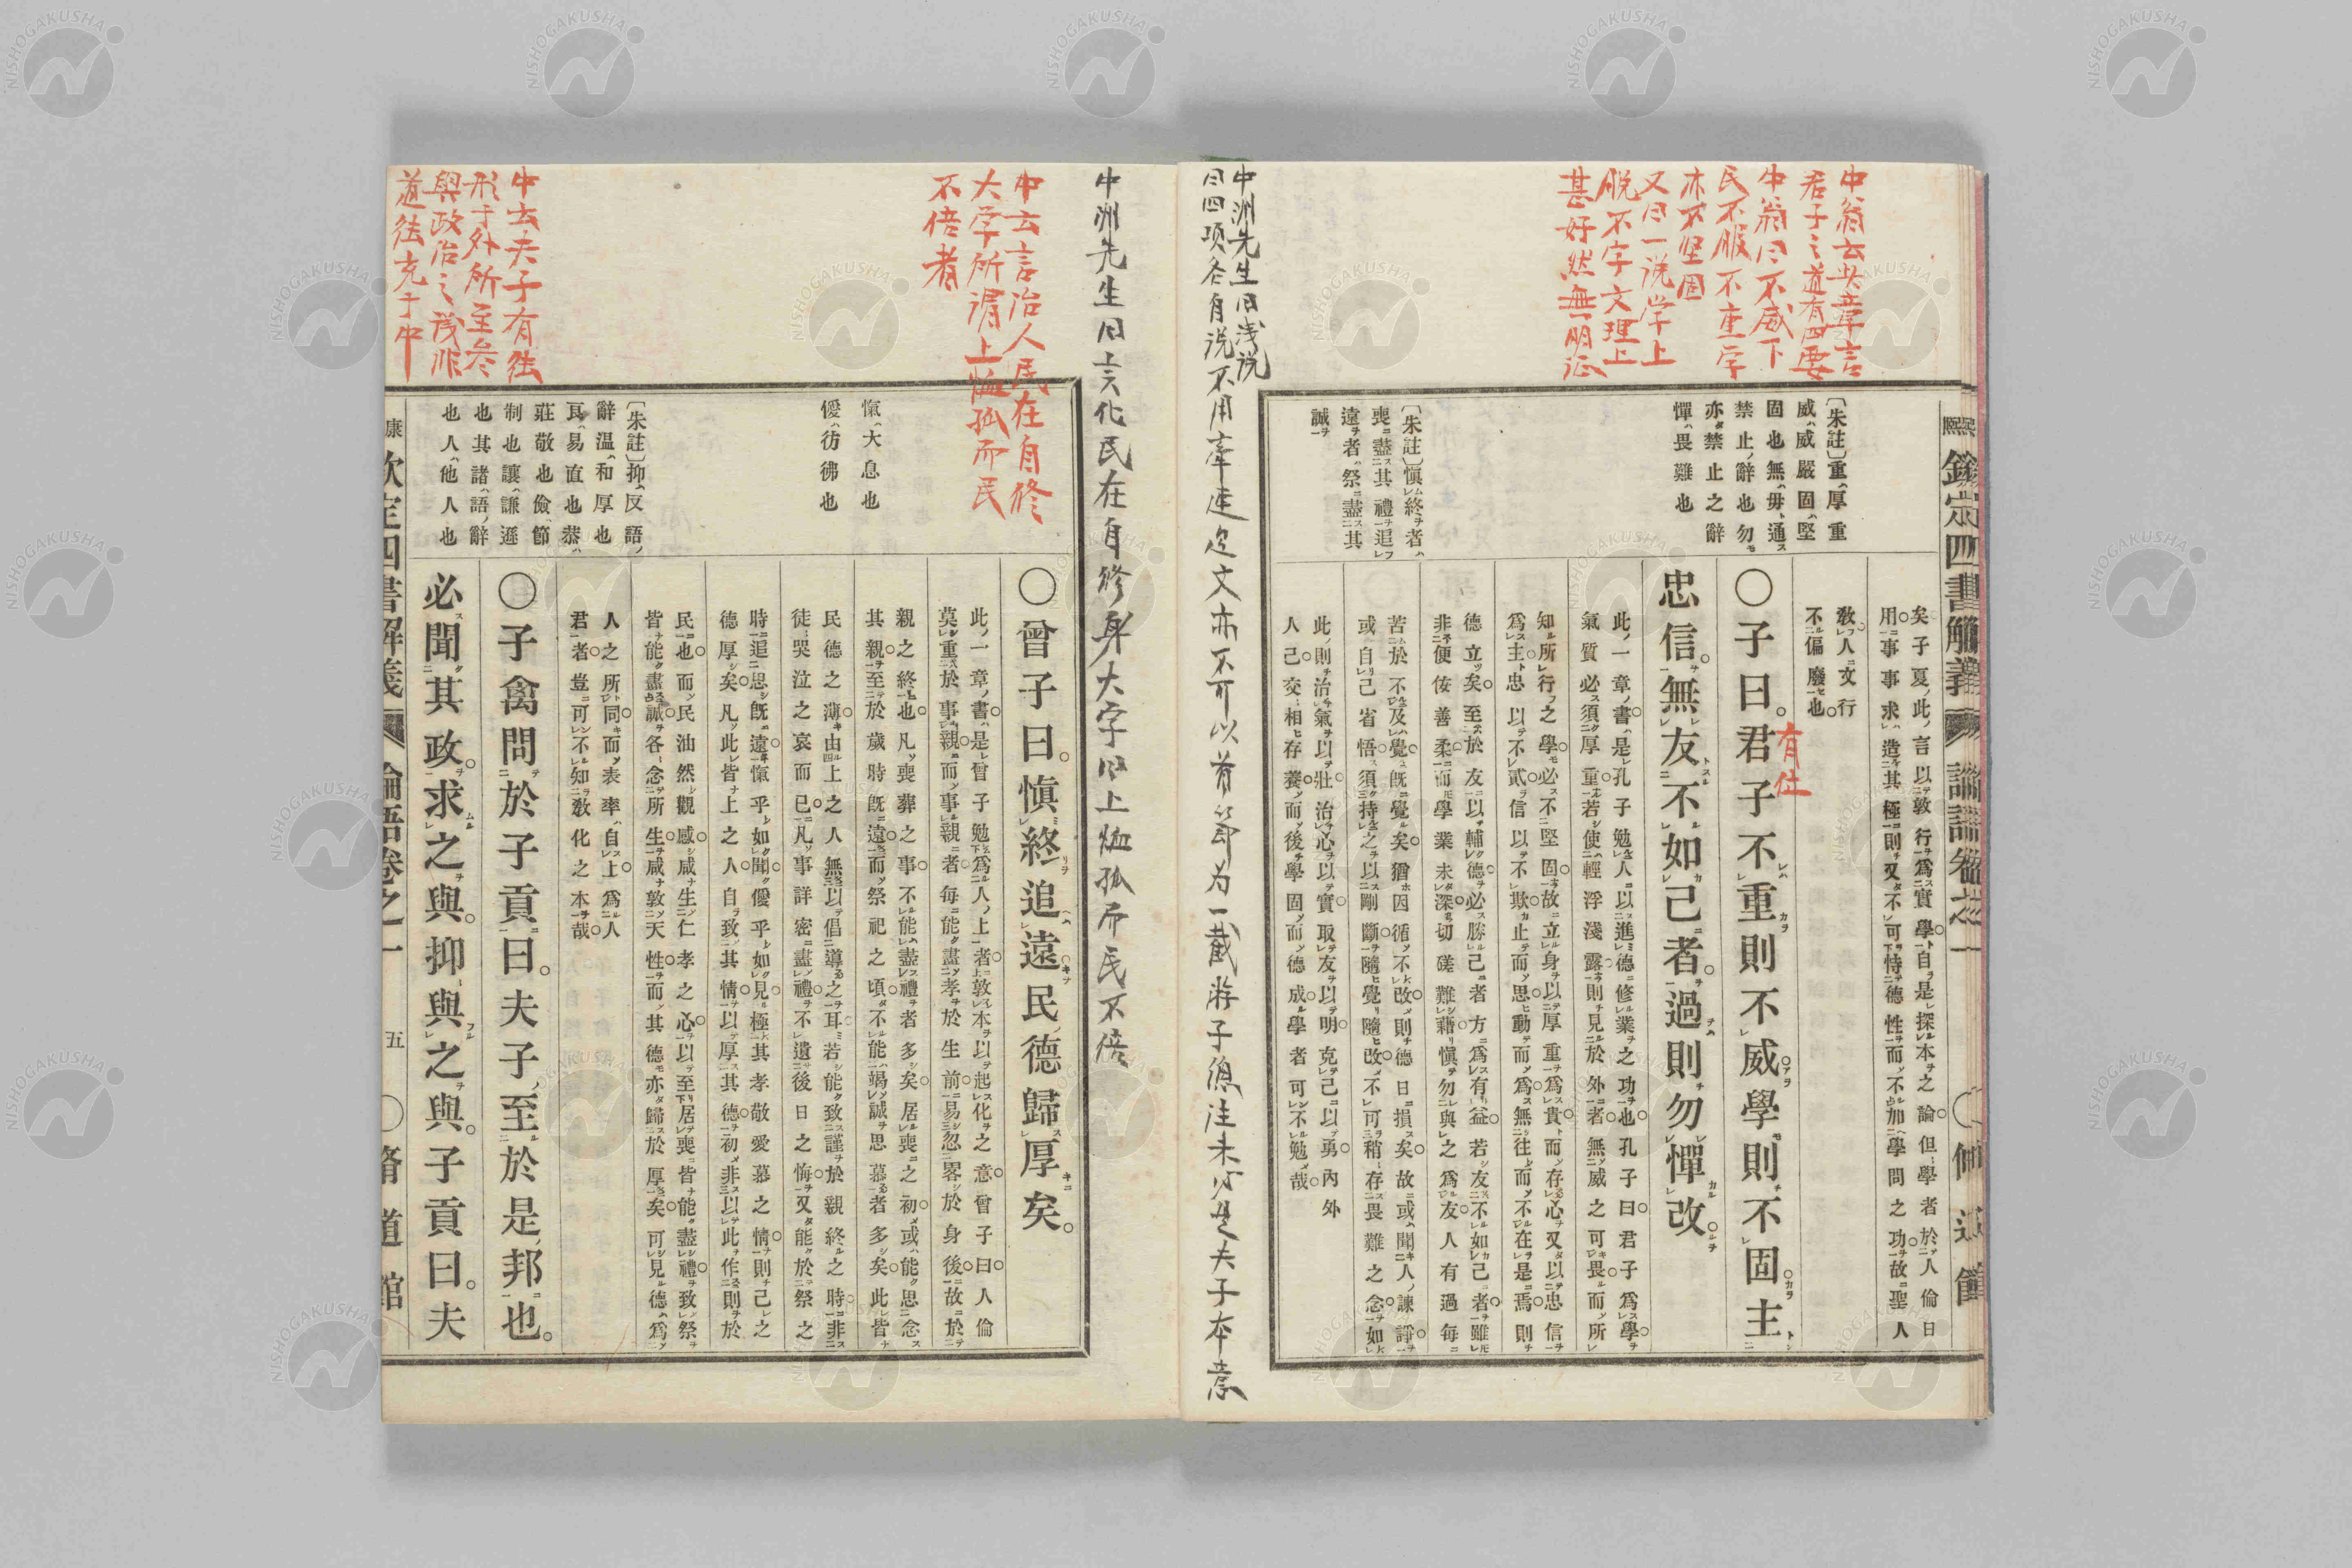 中翁云此章言
君子之道有四要
中翁曰不威下
民不服不重学
亦不坚固
又曰一说学上
脱不字文理上
甚好然無明证
〔朱註〕重、厚重
威、威嚴固、堅
固也無、毋通
禁止ノ辭也勿
亦禁止之辭
憚、畏難也
〔朱註〕愼終者、
喪盡其禮追
遠者、祭盡其
誠
欽定四書解義
論語卷之一
脩道館
矣子夏此言以敦行爲實學自是探本之論但學者於人倫日
用事事求造其極則又不可恃德性而不加學問之功故聖人
敎人文行
不偏廢也
〇子曰。君子不重則不威學則不固主
有位
忠信。無友不如己者。過則勿憚改
此一章書是孔子勉人以進德修業之功也孔子曰君子爲學所
氣質必須厚重若使輕浮淺露則見於外者無威之可畏而所
知所行之學必不堅固故立身以厚重爲貴而存心又以忠信
爲主忠以不貳信以不欺止而思動而爲無往而不在是焉則
德立矣至於友以輔德必勝己者方爲有益若友不如己者雖
非便佞善柔而學業未深切磋難藉愼勿與之爲友人有過每
苦於不及覺既覺矣猶因循不改則德日損矣故或聞人諫諍
或自己省悟須持之以剛斷隨覺隨改不可稍存畏難之念如
此則治氣以壯治心以實取友以明克己以勇內外
人己交相存養而後學固而德成學者可不勉哉
中洲先生曰浅说
曰四项各自说不用牽連定文亦不可以前節为一截游子總注未必是夫子本意
中洲先生曰言化民在自修身大学曰上恤孤而民不倍
中云言治人民在自修
大学所谓上恤孤而民
不倍者
中云夫子有德
形于外所至参
與政治之议非
道德充于中
愾、大息也
僾、彷彿也
〔朱註〕抑、反語ノ
辭温、和厚也
良、易直也恭、
莊敬也儉、節
制也讓、謙遜
也其諸、語ノ辭
也人、他人也
〇曾子曰。愼終追遠民德歸厚矣。
此一章書是曾子勉爲人上者敦本以起化之意曾子曰人倫
莫重於事親而事親者每能盡孝於生前易忽畧於身後故於
親之終也凡喪葬之事不能盡禮者多矣居喪之初或能思念
其親至於歲時既遠而祭祀之頃不能竭誠思慕者多矣此皆
民德之薄由上之人無以倡導之耳若能致謹於親終之時非
徒哭泣之哀而已凡事詳密盡禮不遺後日之悔又能於祭之
時追思既遠愾乎如聞僾乎如見極其孝敬愛慕之情則己之
德厚矣凡此皆上之人自致其情以厚其德初非以此作則於
民也而民油然觀感咸生仁孝之心以至居喪皆能盡禮致祭
皆能盡誠各念所生咸敦天性而其德亦歸於厚矣可見德爲
人之所同而表率自上爲人
君者豈可不知敎化之本哉
〇子禽問於子貢曰。夫子至於是邦也。
必聞其政。求之與。抑與之與。子貢曰。夫
欽定四書解義
論語卷之一
五
〇脩道館